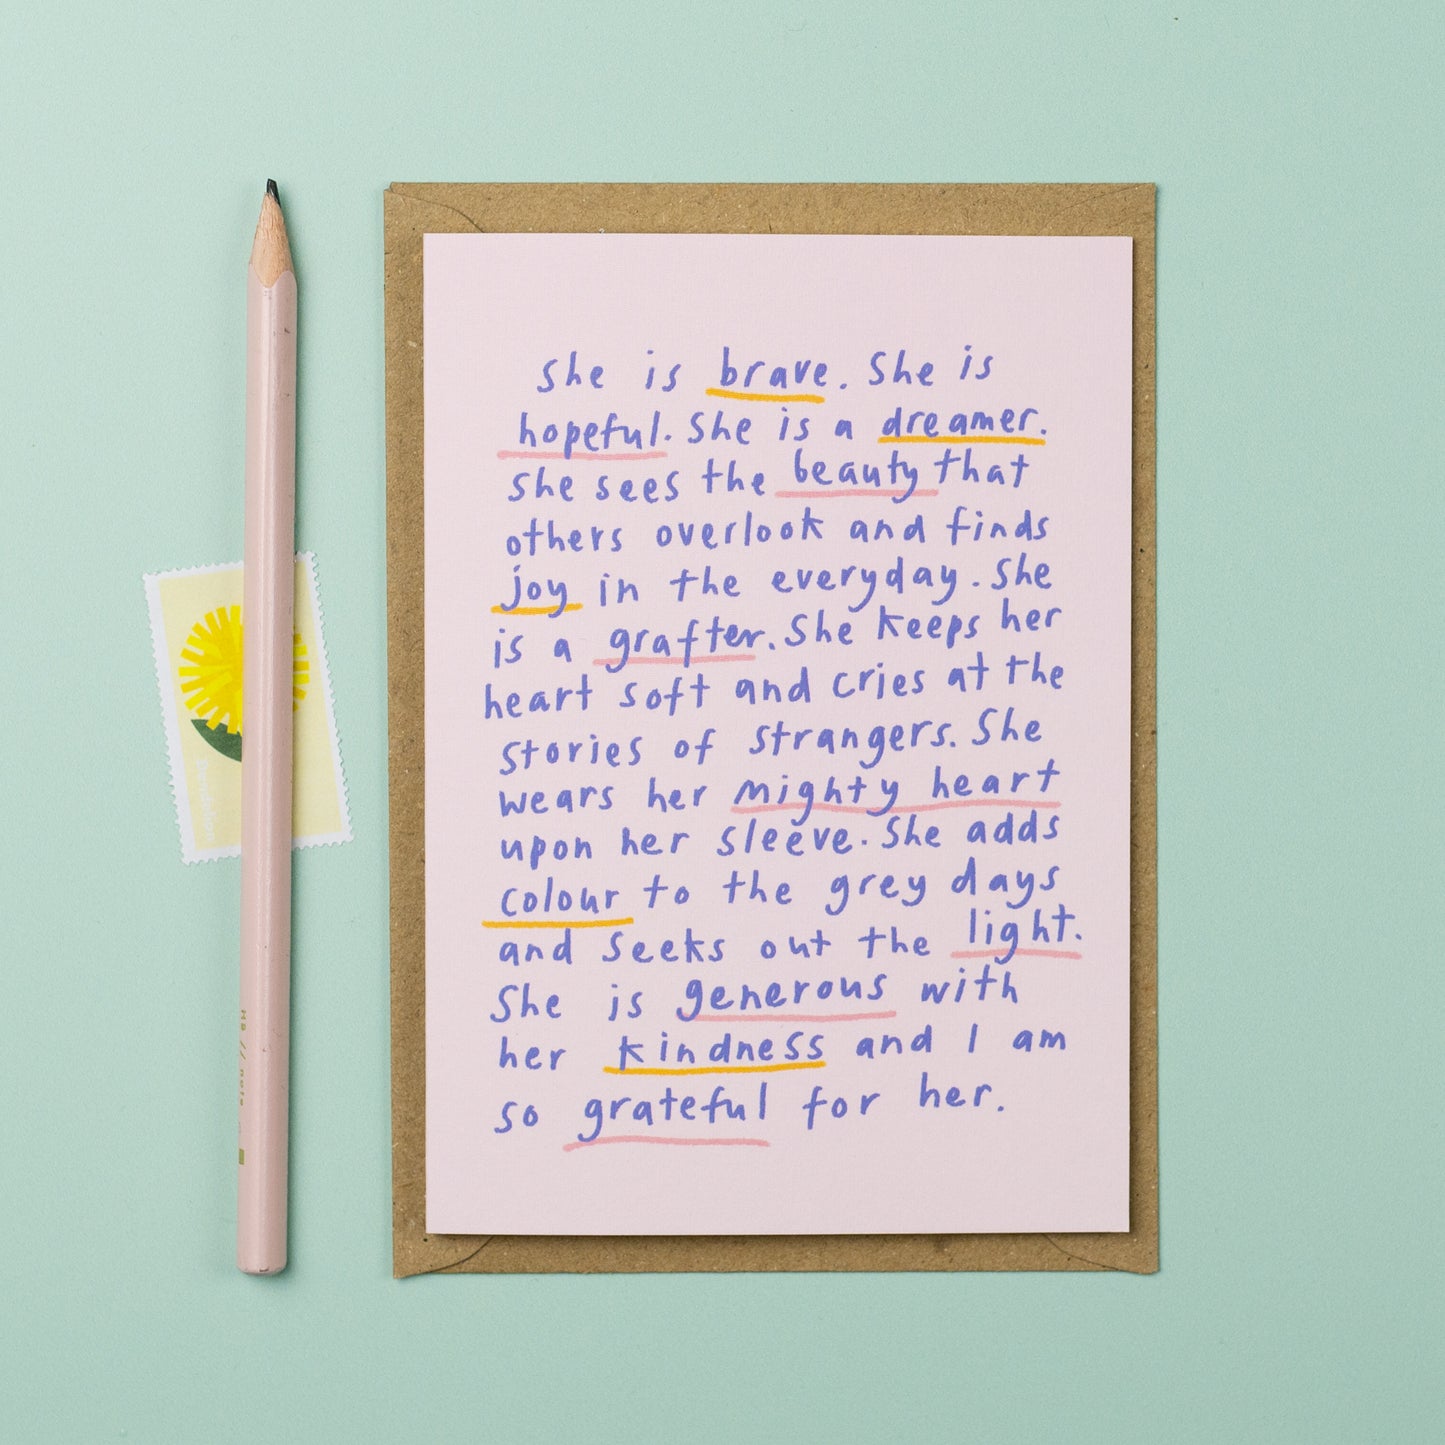 she is brave. She is
hopeful. She is a dreamer.
She sees the beauty that
others overlook and finds
joy in the everyday. She
is a grafter. She keeps her
heart soft and cries at the
stories of strangers. She
wears her mighty heart
upon her sleeve. She adds
colour to the grey days
and seeks out the light.
She is generous with
her kindness and I am
so grateful for her.